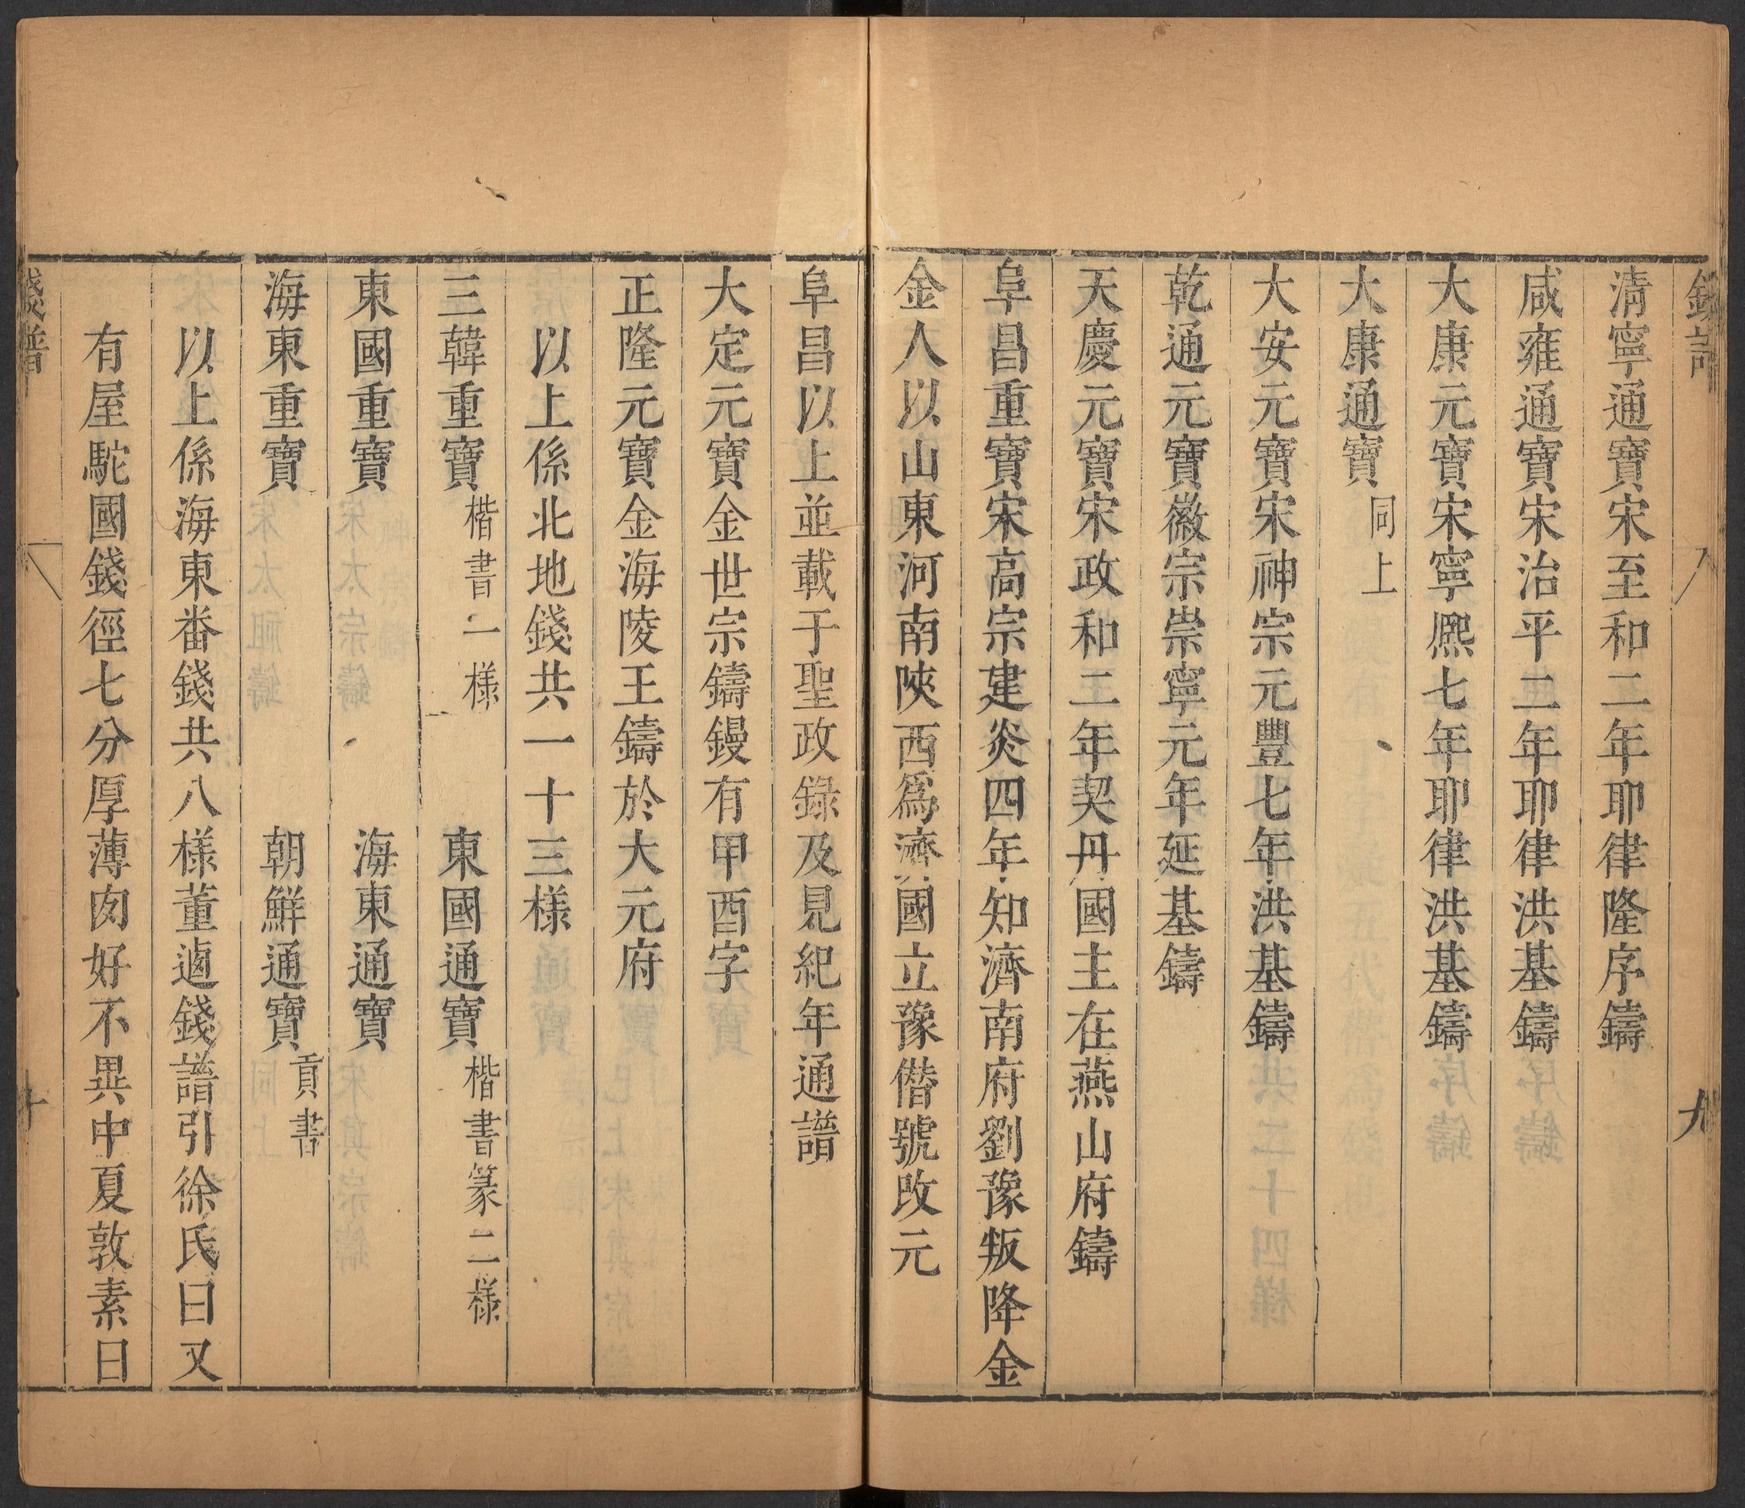 清寧通寶宋至和二年耶律隆序鑄
咸雍通寶宋治平二年耶律洪基鑄
大康元寶宋寧熈七年耶律洪基鑄
大康通寶同上
大安元寶宋神宗元豐七年洪基鑄
乾通元寶徽宗崇寧元年延基鑄
天慶元寶宋政和二年契丹國主在燕山府鑄
阜昌重寶宋高宗建炎四年知濟南府劉豫叛降金
金人以山東河南陝西爲濟國立豫僭號改元
阜昌以上並載于聖政錄及見紀年通譜
大定元寶金世宗鑄鏝有甲酉字
正隆元寶金海陵王鑄於大元府
以上係北地錢共一十三樣
三韓重寶楷書一樣　東國通寶楷書篆二樣
東國重寶　海東通寶
海東重寶　朝鮮通寶貢書
以上係海東畨錢共八樣董逌錢譜引徐氏曰又
有屋駝國錢徑七分厚薄肉好不異中夏敦素曰
錢譜
九
十